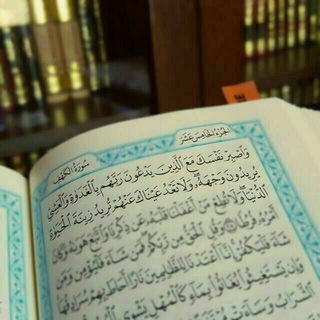 الجُزْءُ الخَامِسَ عَشَرَ
سُورَةُ الكَهْفِ
وَٱصْبِرْ نَفْسَكَ مَعَ ٱلَّذِينَ يَدْعُونَ رَبَّهُم بِٱلْغَدَوٰةِ وَٱلْعَشِىِّ
يُرِيدُونَ وَجْهَهُۥ ۖ وَلَا تَعْدُ عَيْنَاكَ عَنْهُمْ تُرِيدُ زِينَةَ ٱلْحَيَوٰةِ
ٱلدُّنْيَا ۖ وَلَا تُطِعْ مَنْ أَغْفَلْنَا قَلْبَهُۥ عَن ذِكْرِنَا وَٱتَّبَعَ هَوَىٰهُ وَكَانَ
أَمْرُهُۥ فُرُطًا وَقُلِ ٱلْحَقُّ مِن رَّبِّكُمْ ۖ فَمَن شَآءَ فَلْيُؤْمِن وَمَن
شَآءَ فَلْيَكْفُرْ ۚ إِنَّآ أَعْتَدْنَا لِلظَّٰلِمِينَ نَارًا أَحَاطَ بِهِمْ سُرَادِقُهَا ۚ
وَإِن يَسْتَغِيثُوا۟ يُغَاثُوا۟ بِمَآءٍ كَٱلْمُهْلِ يَشْوِى ٱلْوُجُوهَ
ٱلشَّرَابُ وَسَآءَتْ